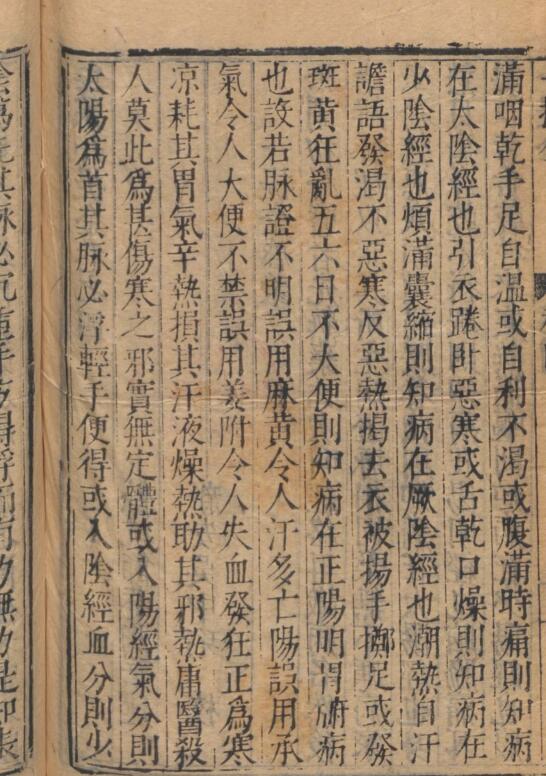 滿咽乾手足自溫或自利不渴或腹滿時痛則知病
在太陰經也引衣踡卧惡寒或舌乾口燥則知病在
少陰經也煩滿囊縮則知病在厥陰經也潮熱自汗
譫語發渴不惡寒反惡熱揭去衣被揚手擲足或發
斑黃狂亂五六日不大便則知病在正陽明胃腑病
也設若脉證不明誤用麻黃令人汗多亡陽誤用承
氣令人大便不禁誤用姜附令人失血發狂正為寒
凉耗其胃氣辛熱損其汗液燥熱助其邪熱庸醫殺
人莫此為甚傷寒之邪實無定體或入陽經氣分則
太陽為首其脉必浮輕手便得或入陰經血分則少
陰為先其脉必沉重手方得浮而有力無力是知表